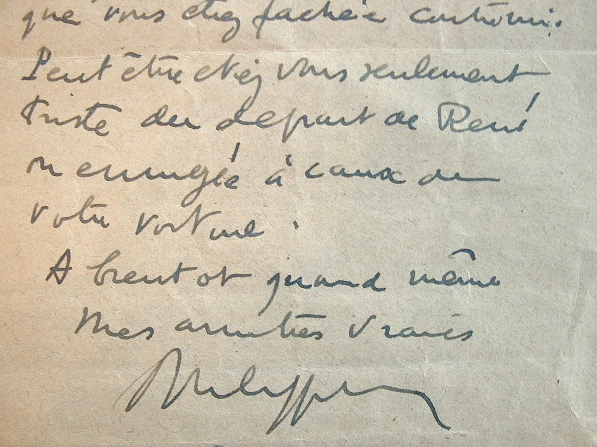 que vous étiez fachée contre moi.
Peut être etiez vous seulement
triste du depart de René
ou ennuyée à cause de
votre voiture.
A bientot quand même
Mes amitiés vraies
Philippe